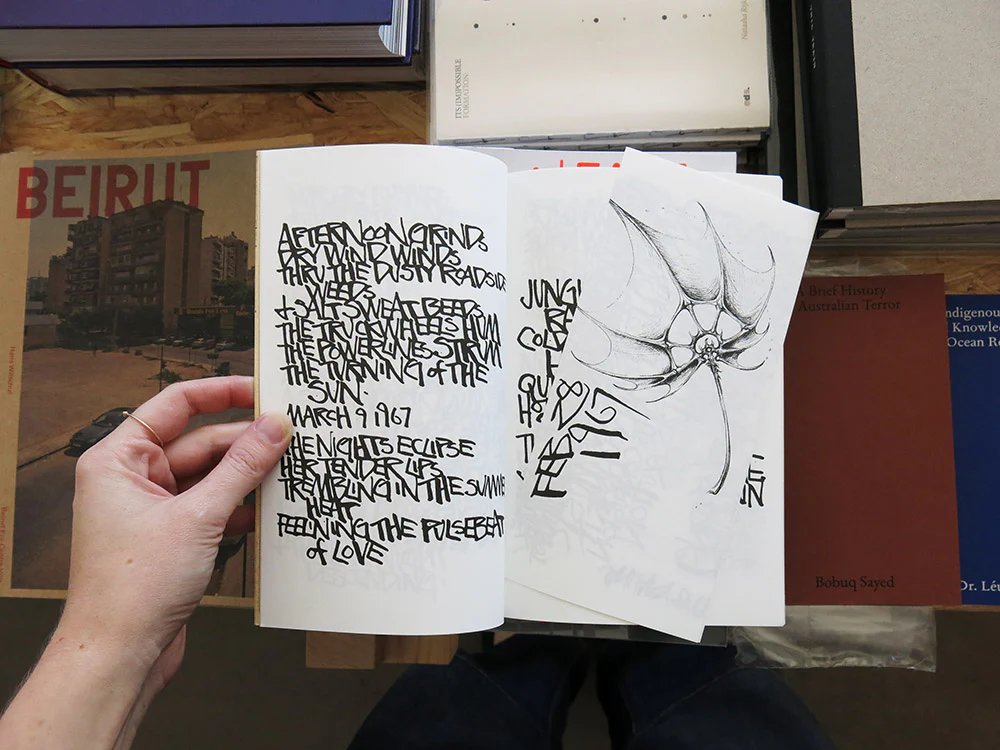 ITS (IM)POSSIBLE
FORMATION
BEIRUT
AFTERNOON GRINDS
DRY WIND WINDS
THRU THE DUSTY ROADSIDE
WEEDS
& SALT SWEAT BEEDS
THE TRUCKWHEELS HUM
THE POWERLINES STRUM
THE TURNING of THE
SUN.
MARCH 9 1967
THE NIGHTS ECLIPSE
HER TENDER LIPS
TREMBLING IN THE SUMMER
HEAT
FEELNING THE PULSEBEAT
of LOVE
JUNG
QU
FEB 28
1967
A Brief History
Australian Terror
Bobuq Sayed
ndigenou
Knowled
Ocean Re
Dr. Léu